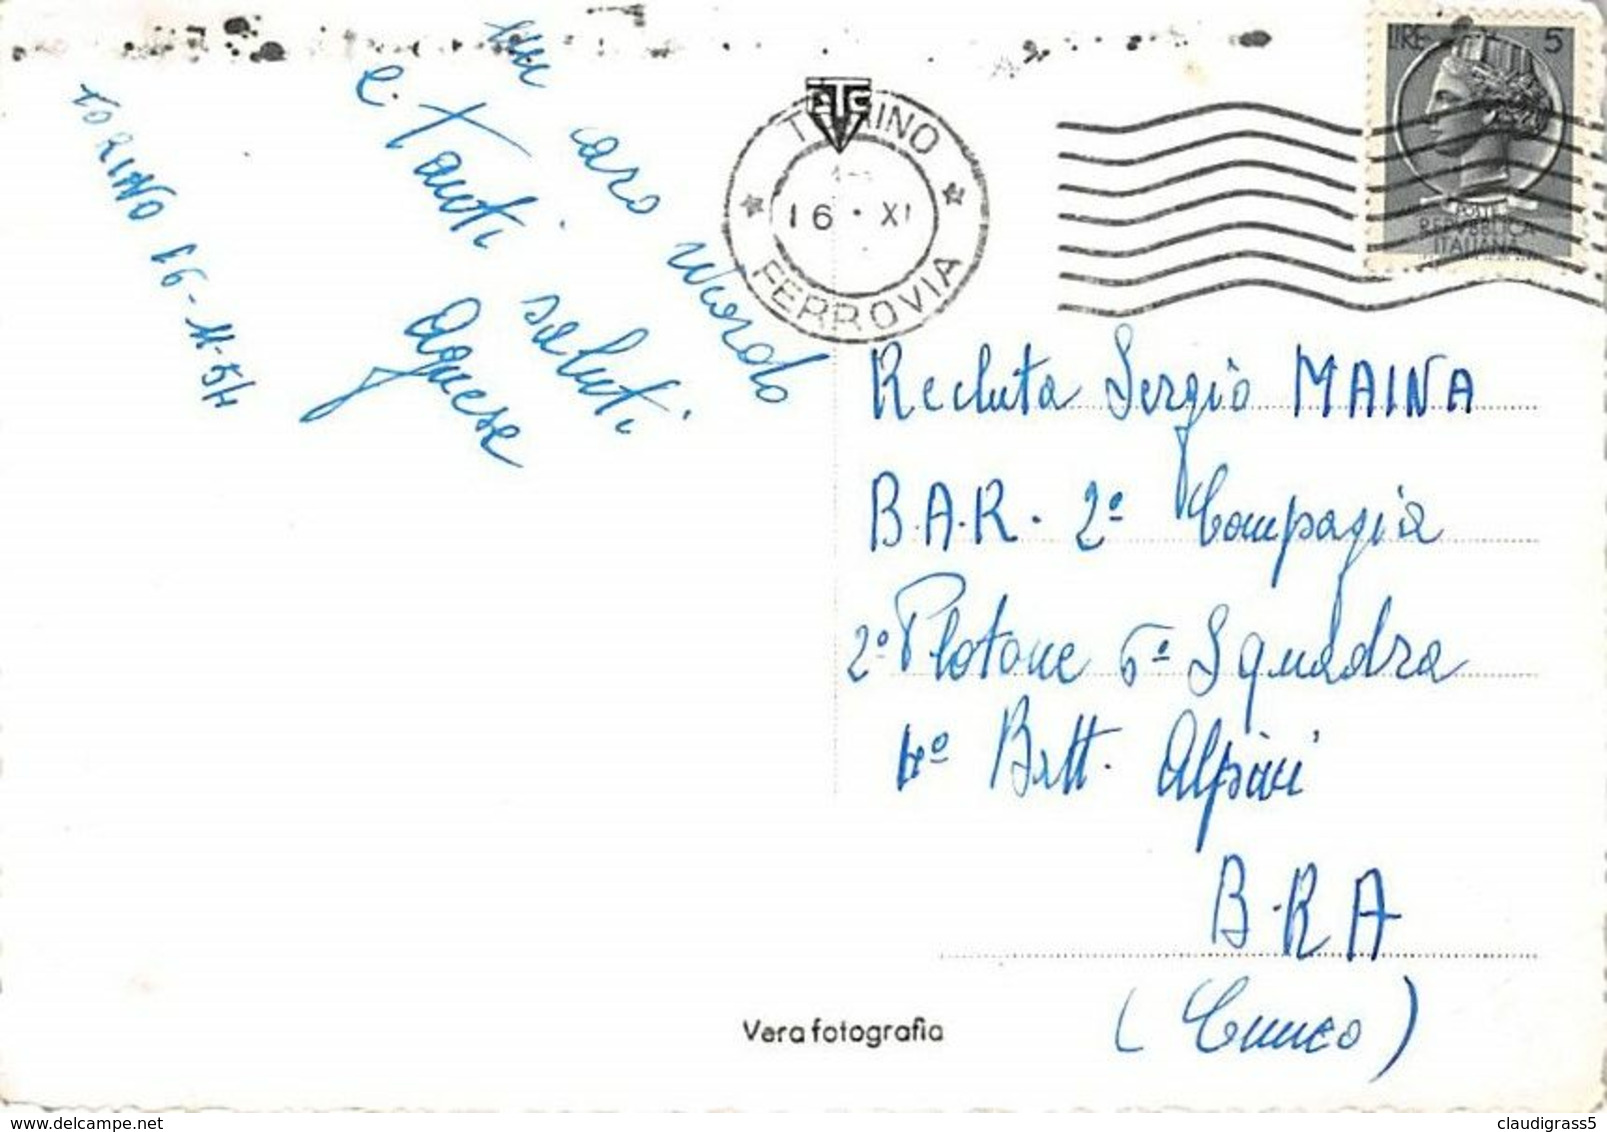 TORINO 16-11-54
un caro ricordo
e. Tanti saluti
Agnese
ATC
TORINO
16 · XI
FERROVIA
LIRE 5
POSTE
REPVBBLICA
ITALIANA
Recluta Sergio MAINA
B.A.R. 2º Compagia
2º Plotone 6ª Squadra
4º Batt. Alpini
B.RA
(Cuneo)
Vera fotografia
delcampe.net
claudigrass5